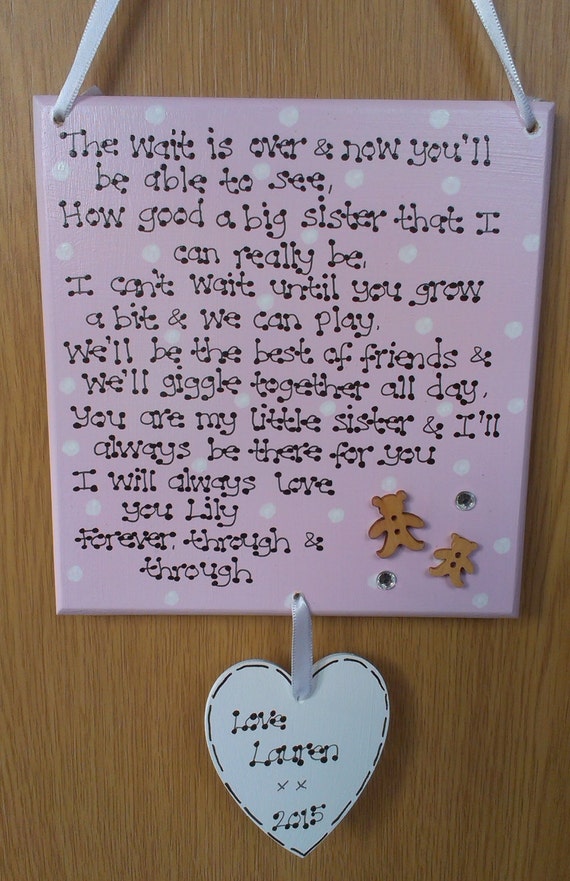 The wait is over & now you'll
be able to see,
How good a big sister that I
can really be.
I can't wait until you grow
a bit & we can play.
We'll be the best of friends &
we'll giggle together all day.
You are my little sister & I'll
always be there for you
I will always love
you Lily
forever, through &
through
Love
Lauren
x x
2015